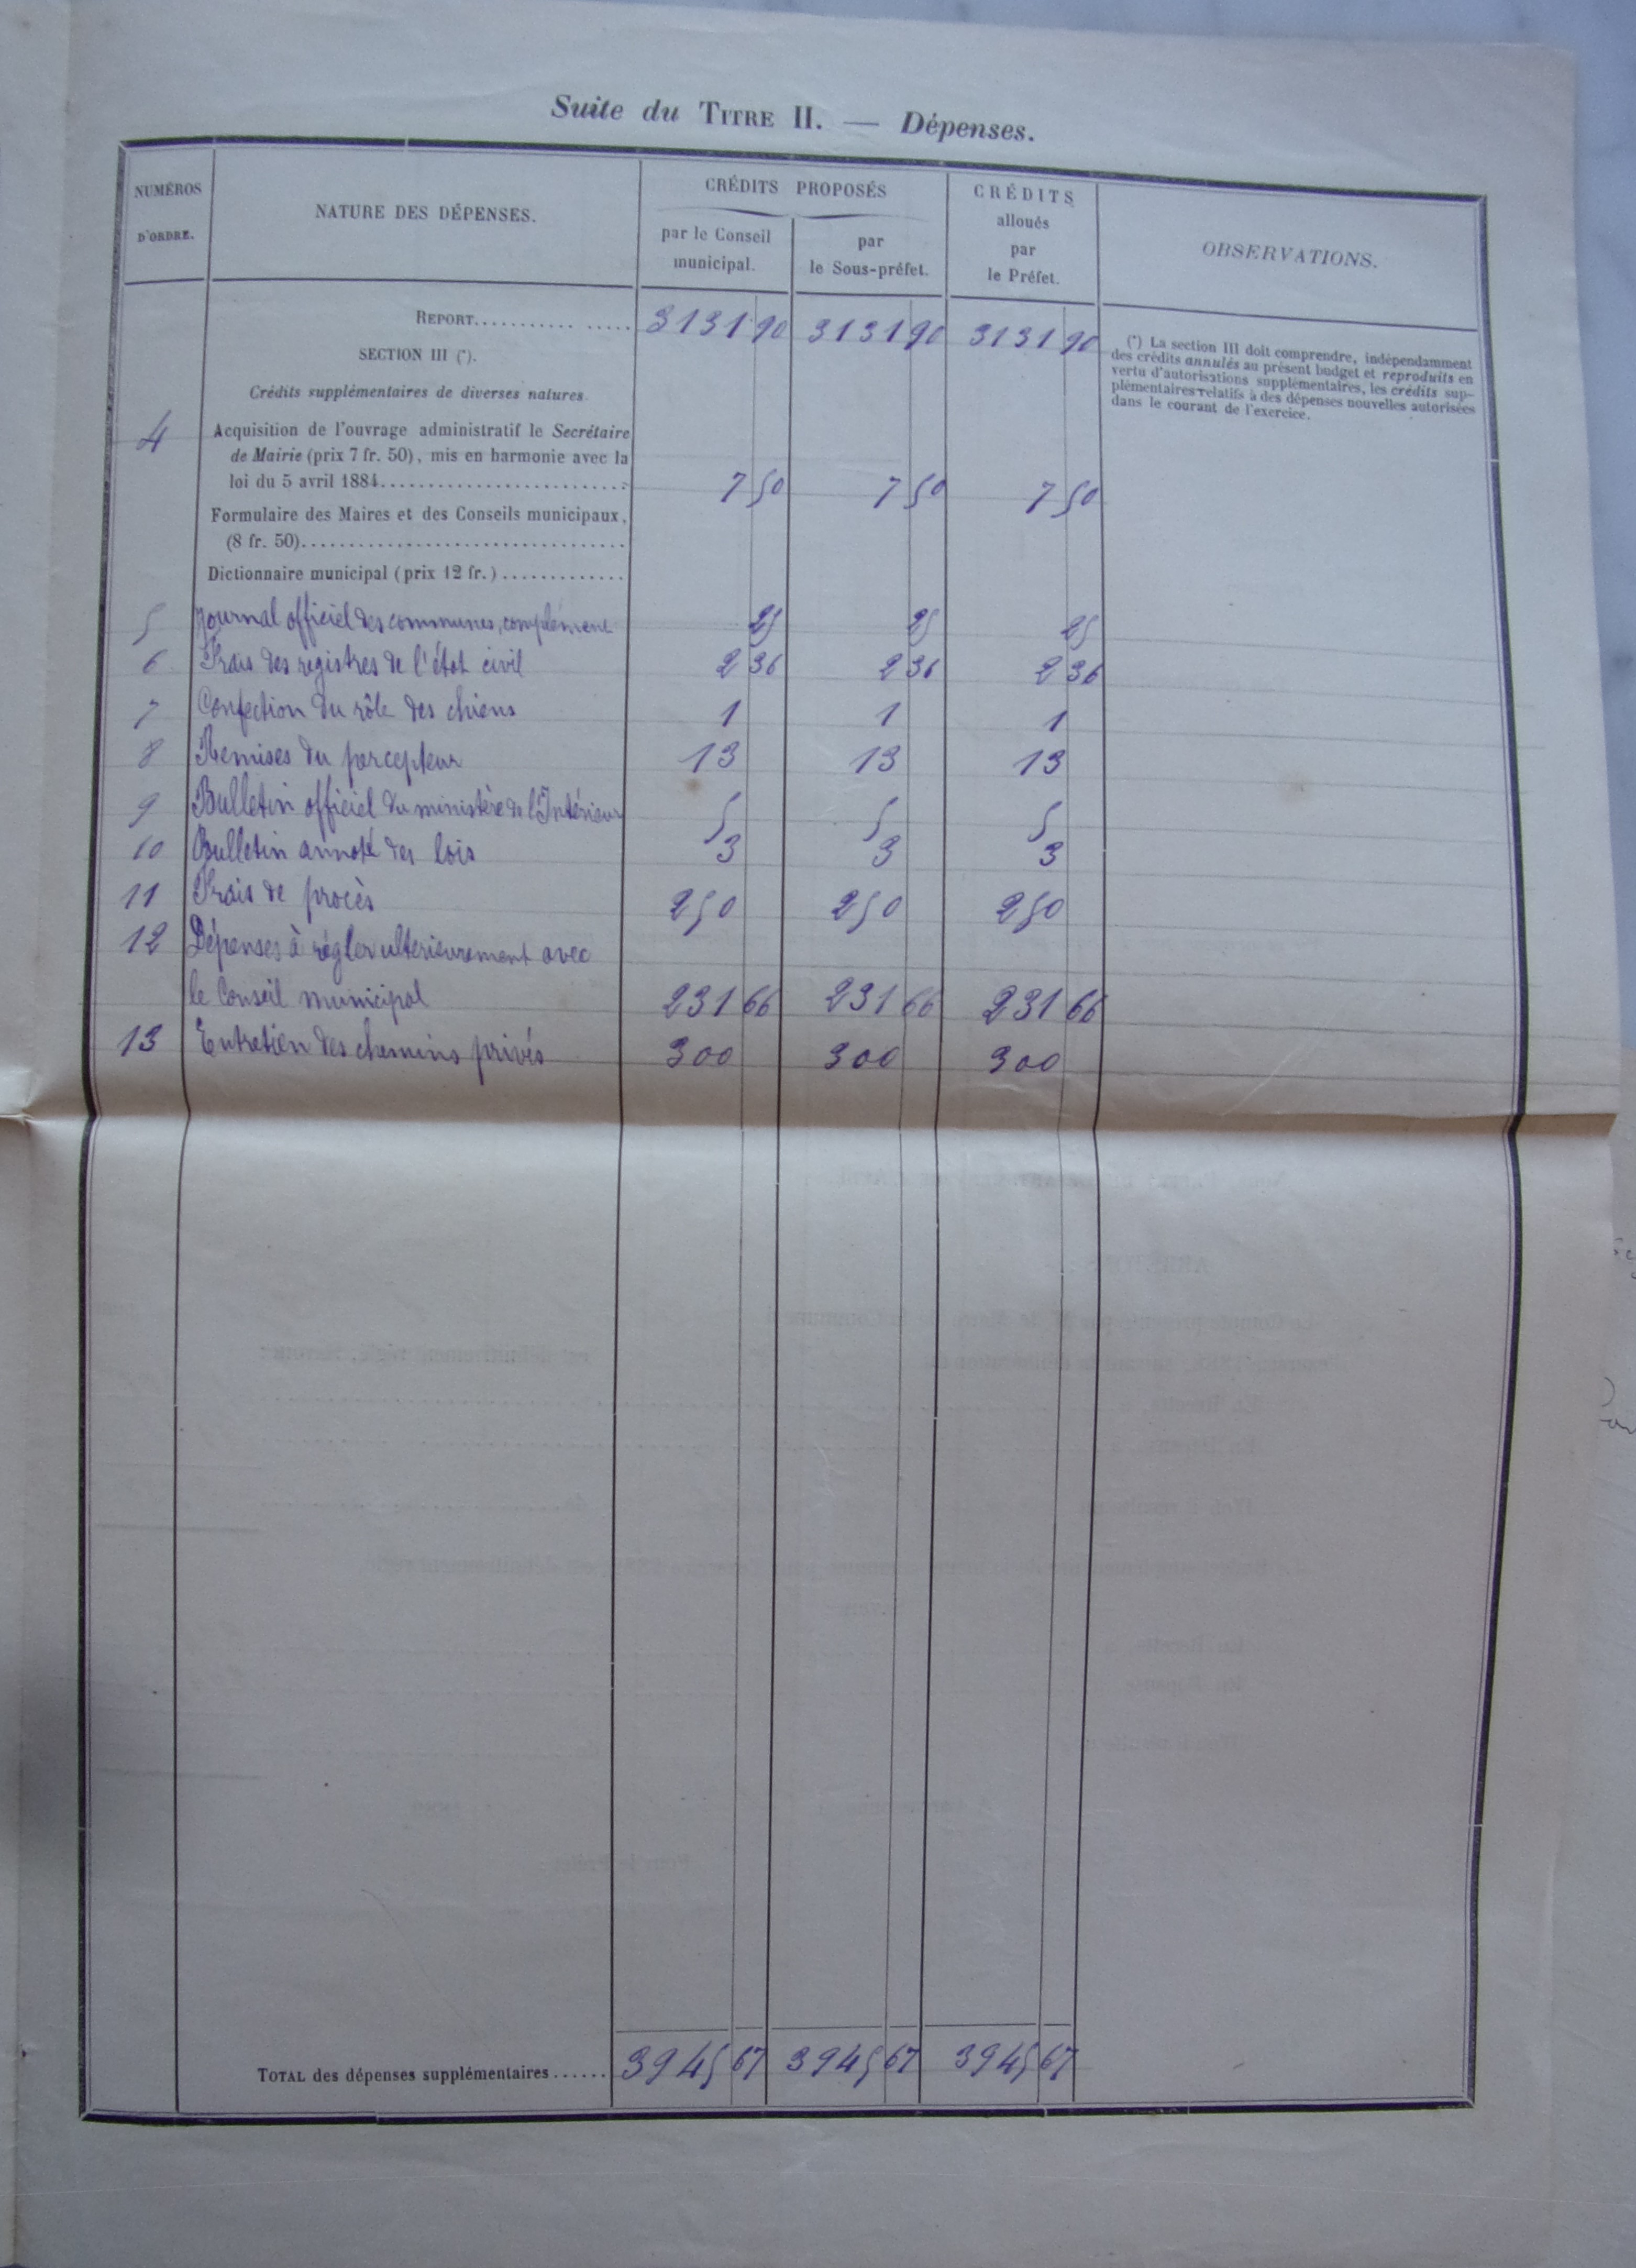 Suite du TITRE II. — Dépenses.
NUMÉROS
D'ORDRE.
NATURE DES DÉPENSES.
CRÉDITS PROPOSÉS
par le Conseil
municipal.
par
le Sous-préfet.
CRÉDITS
alloués
par
le Préfet.
OBSERVATIONS.
REPORT................ 3131 90 3131 90 3131 90
SECTION III (*).
Crédits supplémentaires de diverses natures.
(*) La section III doit comprendre, indépendamment
des crédits annulés au présent budget et reproduits en
vertu d'autorisations supplémentaires, les crédits sup-
plémentaires relatifs à des dépenses nouvelles autorisées
dans le courant de l'exercice.
4 Acquisition de l'ouvrage administratif le Secrétaire
de Mairie (prix 7 fr. 50), mis en harmonie avec la
loi du 5 avril 1884.......................... 7 50 7 50 7 50
Formulaire des Maires et des Conseils municipaux,
(8 fr. 50)..................................
Dictionnaire municipal (prix 12 fr.).............
5 Journal officiel des communes, complément 25 25 25
6 Frais des registres de l'état civil 2 36 2 36 2 36
7 Confection du rôle des chiens 1 1 1
8 Remises du percepteur 13 13 13
9 Bulletin officiel du ministère de l'Intérieur 5 5 5
10 Bulletin annoté des lois 3 3 3
11 Frais de procès 250 250 250
12 Dépenses à régler ulterieurement avec
le Conseil municipal 231 66 231 66 231 66
13 Entretien des chemins privés 300 300 300
TOTAL des dépenses supplémentaires...... 3945 67 3945 67 3945 67